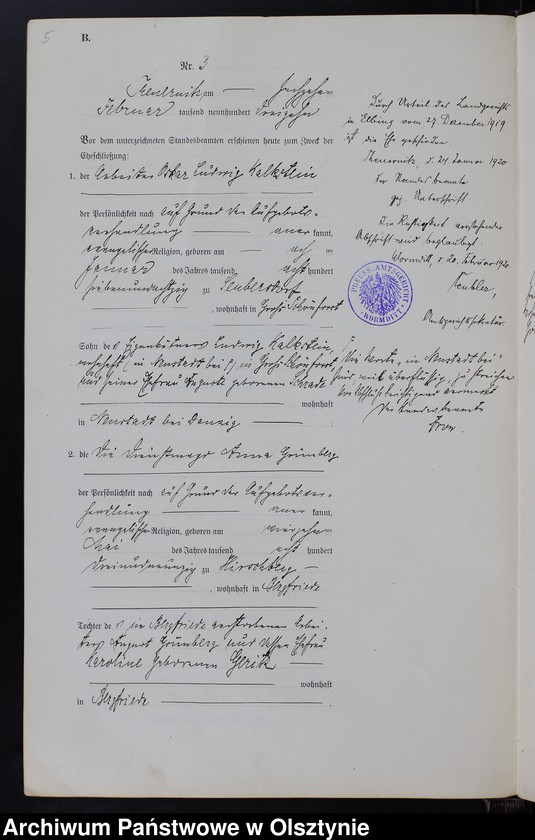 5
B.
Nr. 3
am
Februar tausend neunhundert dreizehn
Vor dem unterzeichneten Standesbeamten erschienen heute zum Zweck der
Eheschließung:
1. der Arbeiter Oskar Ludwig Kalkstein
der Persönlichkeit nach auf Grund der Aufgebots-
verhandlung anerkannt,
evangelischer Religion, geboren am
Januar des Jahres tausend acht hundert
siebenundachtzig zu
, wohnhaft in Groß
Sohn des Eigenkätners Ludwig Kalkstein,
wohnhaft
und seiner Ehefrau Auguste geborenen
wohnhaft
in Neustadt bei Danzig
2. die Dienstmagd Anna Grünberg
der Persönlichkeit nach auf Grund der Aufgebotsver-
handlung anerkannt,
evangelischer Religion, geboren am vierzehn
Mai des Jahres tausend acht hundert
dreiundneunzig zu Hirschberg
, wohnhaft in Bergfriede
Tochter des in Bergfriede verstorbenen Arbei-
ters August Grünberg und dessen Ehefrau
Karoline geborenen
wohnhaft
in Bergfriede
Durch Urteil des Landgerichts
in Elbing vom 27 Dezember 1919
ist die Ehe geschieden.
d. 24 Januar 1920
Der Standesbeamte
gez. Unterschrift
Die Richtigkeit vorstehender
Abschrift wird beglaubigt.
Wormditt, d. 20. Februar 1920
Amtsgerichtssekretär
PREUSS. AMTSGERICHT
WORMDITT
Die Worte "in Neustadt bei"
sind weil überflüssig, zu streichen
Der Standesbeamte
Archiwum Państwowe w Olsztynie